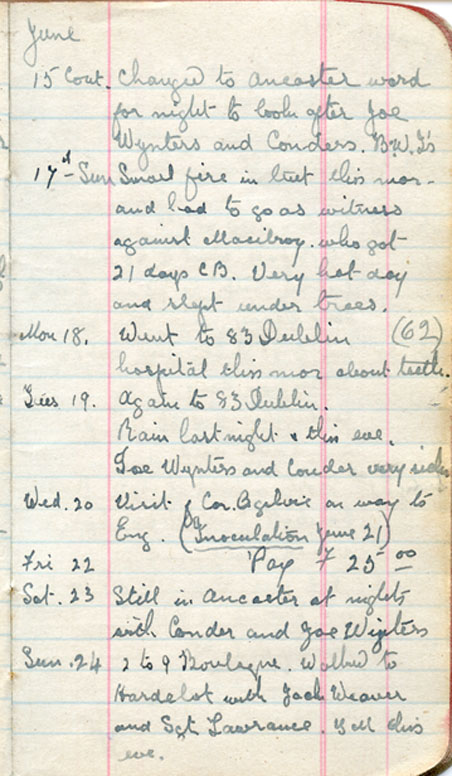 June
15 Cont. Changed to Ancaster word
for night to look after Joe
Wynters and Conders. B.W.T's
17th Sun Small fire in hut this mor-
and had to go as witness
against Macilroy. who got
21 days C.B. Very hot day
and slept under trees.
Mon 18. Went to 83 Dublin (62)
hospital this mor about teeth.
Tues 19. Again to 83 Dublin.
Rain last night & this eve.
Joe Wynters and Conder very sick
Wed. 20 Visit Cor. Ogelvie on way to
Eng. (Inoculation June 21)
Fri 22 Pay F 25 00
Sat. 23 Still in Ancaster at nights
with Conder and Joe Wynters
Sun. 24 2 to 9 Boulogne. Walked to
Hardelot with Jack Weaver
and Sgt Lawrance. this
eve.